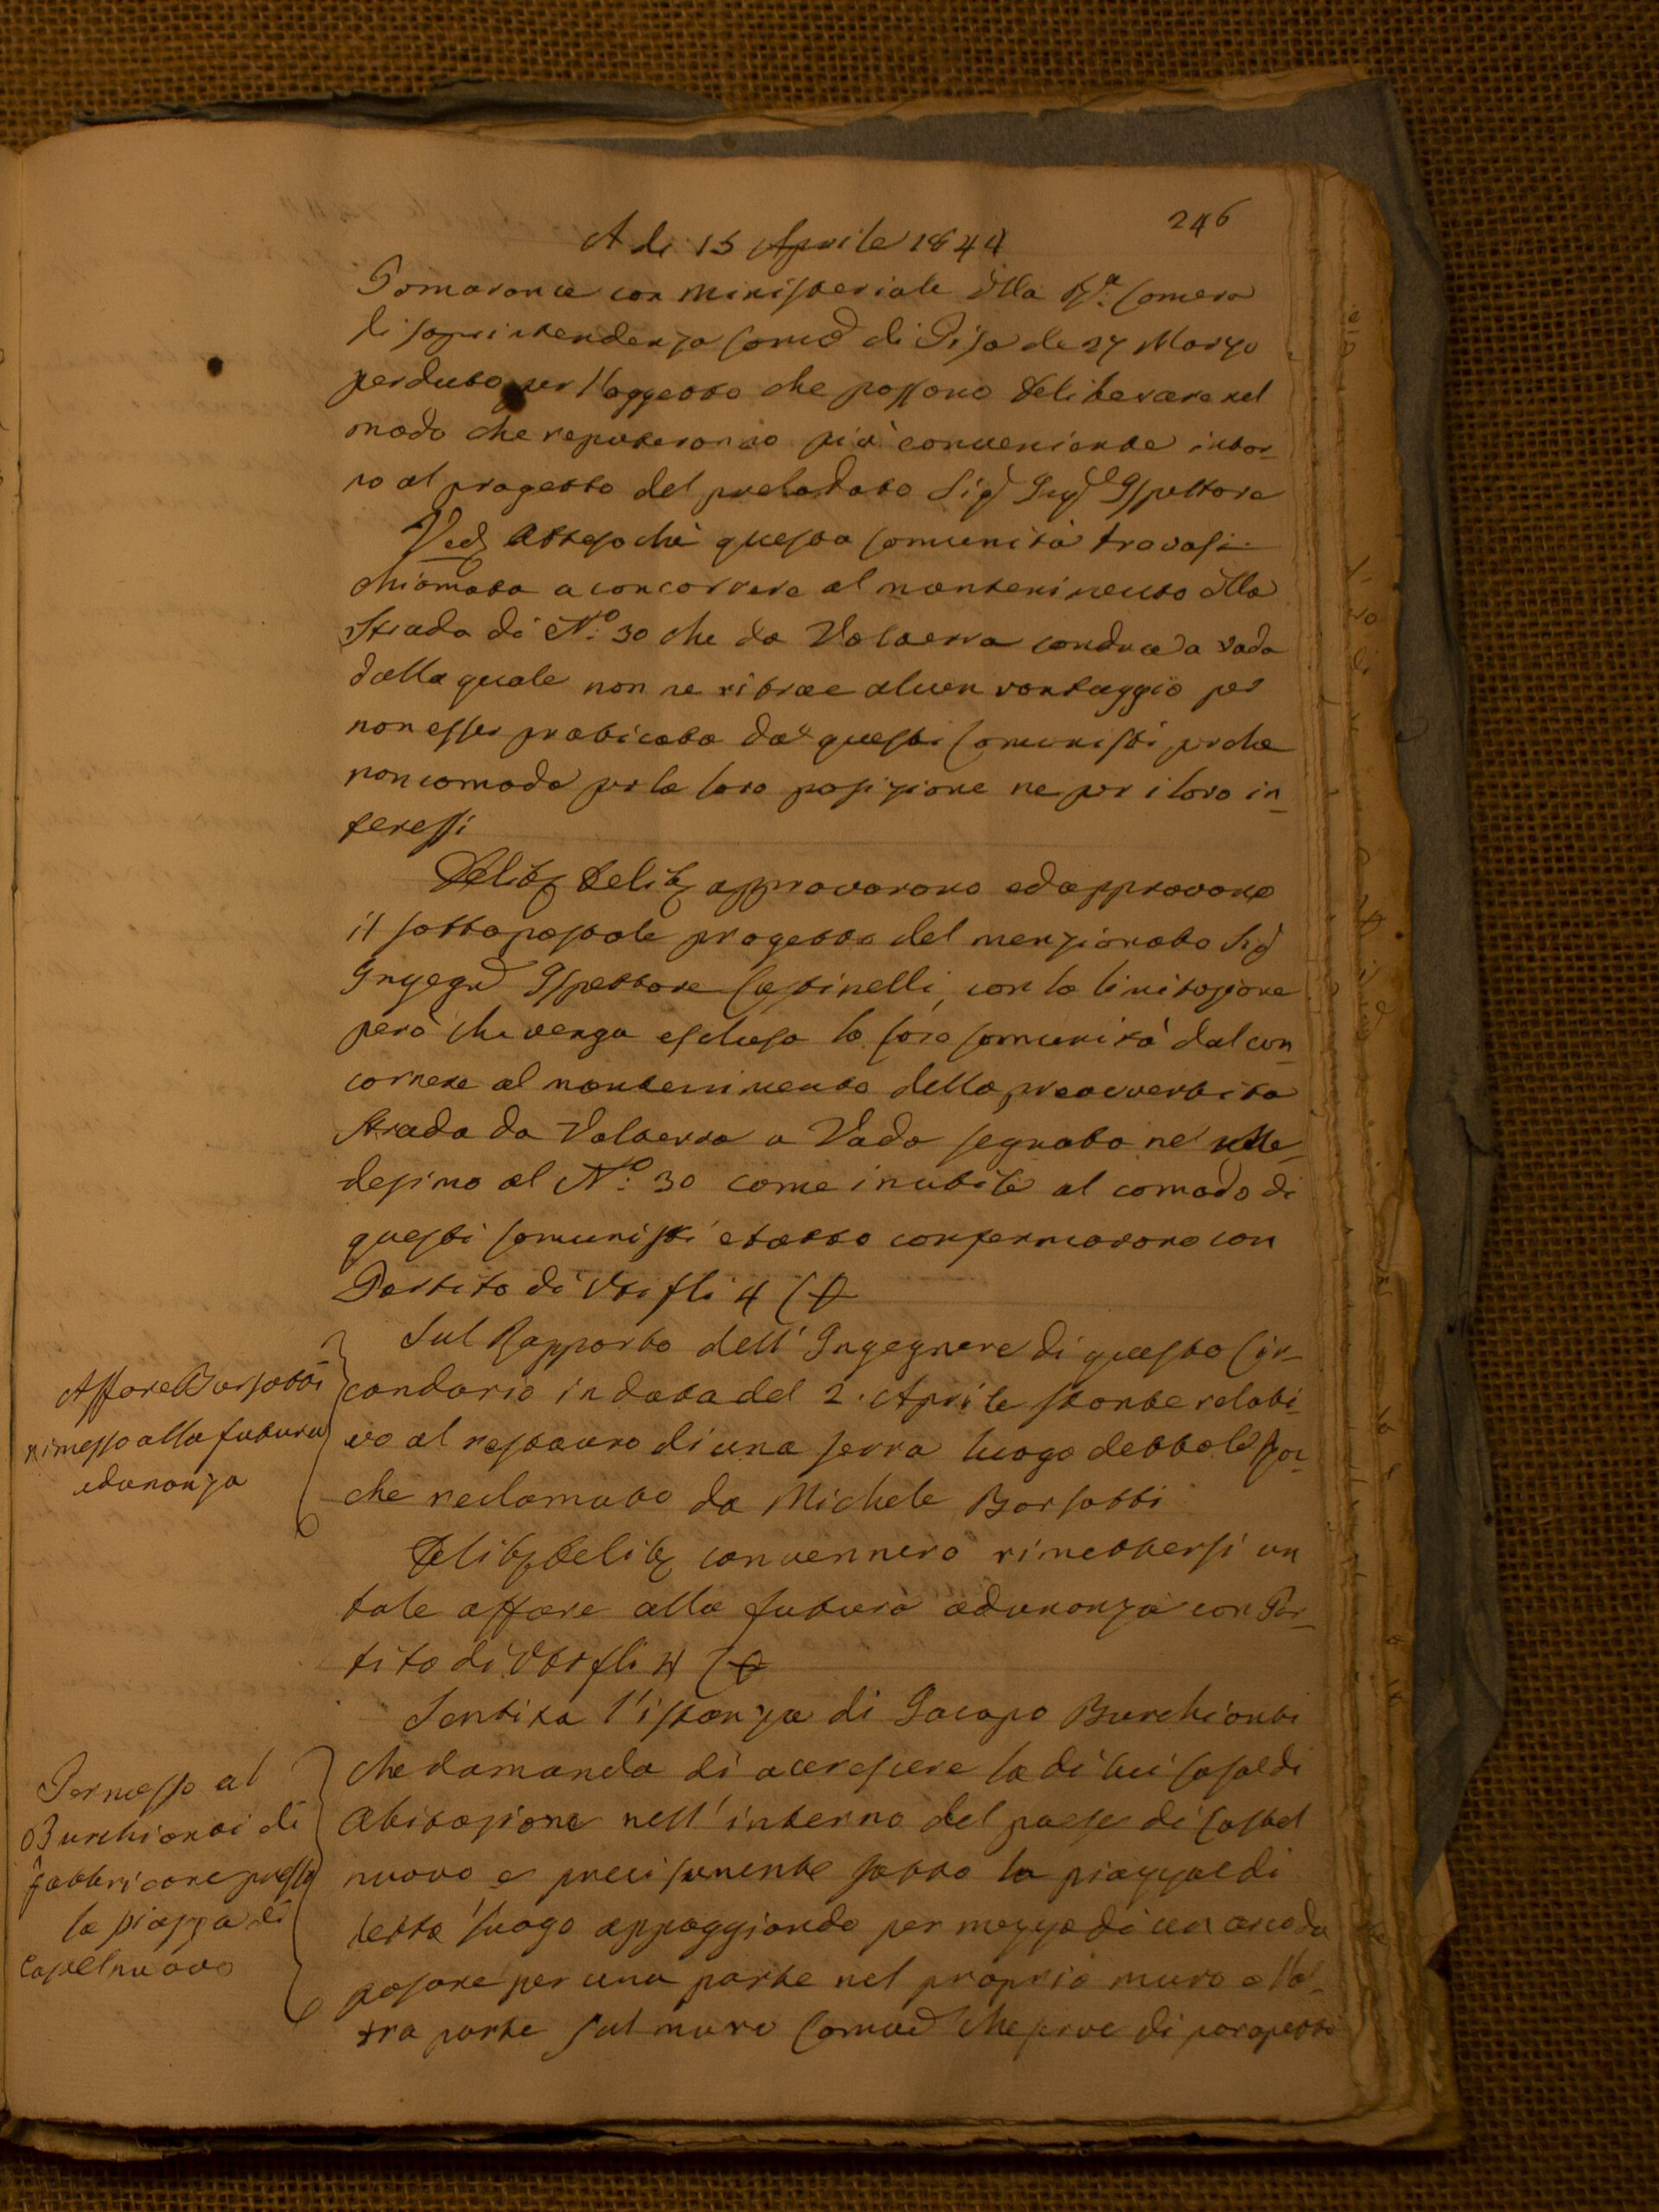 246
A di 15 Aprile 1844
Pomarance con ministeriale della Ra. Camera
di soprintendenza Comve di Pisa de 27 Marzo
perduto per l'oggetto che possono deliberare nel
modo che reputeranno più conveniente intor-
no al progetto del prelodato Sigr Ingre Ispettore
Vedz Attesoché questa Comunità trovasi
chiamata a concorrere al mantenimento della
Strada di No: 30 che da Volterra conduce a Vada
dalla quale non ne ritrae alcun vantaggio per
non esser praticata da questi Comunisti perche
non comoda per la loro posizione ne per i loro in-
teressi
Delibz Delibz approvarono ed approvano
il sottoposto progetto del menzionato Sigr
Ingegre Ispettore Castinelli, con la limitazione
però che venga esclusa la loro Comunità dal con-
correre al mantenimento della preavvertita
Strada da Volterra a Vada segnata nel mede-
desimo al No: 30 come inutile al comodo di
questi Comunisti e tutto confermarono con
Partito di Vti fli 4
Sul Rapporto dell' Ingegnere di questo Cir-
condario in data del 2. Aprile stante relati-
vo al restauro di una serra luogo detto le
che reclamato da Michele Borsotti
Delibz Delibz convennero rimettersi un
tale affare alla futura adunanza con Par-
tito di Vti fli 4
Sentita l'istanza di Jacopo Burchianti
che domanda di accrescere la di lui casa di
abitazione nell' interno del paese di Castel
nuovo e precisamente sotto la piazza di
detto luogo appoggiando per mezzo di un arco da
posare per una parte nel proprio muro e l'al-
tra parte sul muro Comve che serve di parapetto
Affare Borsotti
rimesso alla futura
adunanza
Permesso al
Burchianti di
fabbricare presso
la piazza di
Castelnuovo